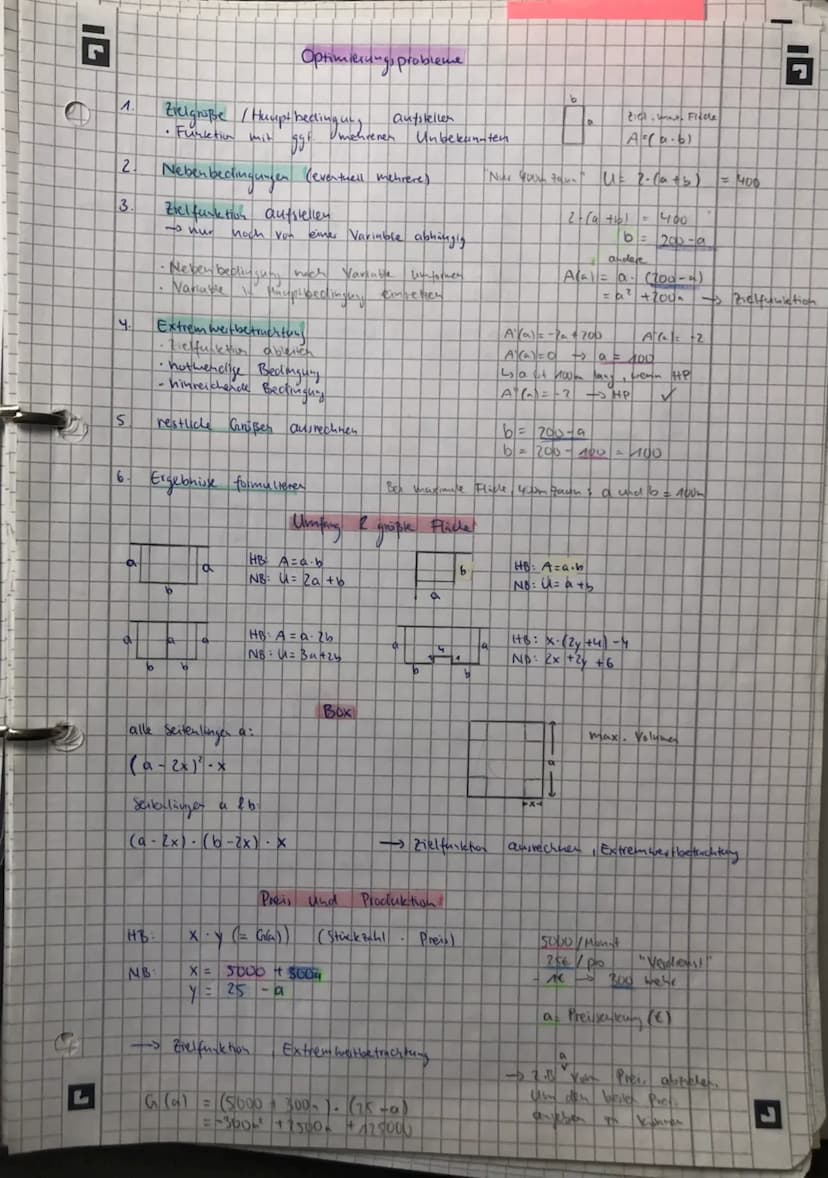 Optimierungsprobleme
1. Zielgröße / Hauptbedingung aufstellen
• Funktion mit ggf. mehreren Unbekannten
b
a
Ziel: max. Fläche
A=(a·b)
2. Nebenbedingungen (eventuell mehrere)
"Nur 400m Zaun" U= 2·(a+b) = 400
3. Zielfunktion aufstellen
→ nur noch von einer Variable abhängig
• Nebenbedingung nach Variable umformen
• Variable in Hauptbedingung einsetzen
2·(a+b) = 400
b = 200-a
A(a) = a·(200-a)
= a² +200a → Zielfunktion
4. Extremwertbetrachtung
• Zielfunktion ableiten
• notwendige Bedingung
• hinreichende Bedingung
A'(a)= -2a+200 A''(a)= -2
A'(a)=0 → a = 100
↳ a ist 100m lang, wenn HP
A''(a)= -2 → HP ✓
5 restliche Größen ausrechnen
b = 200-a
b = 200-100 = 100
6. Ergebnisse formulieren
Bei maximale Fläche, 400m Zaun: a und b = 100m
Umfang & größte Fläche
a a
b
HB: A=a·b
NB: U= 2a+b
b
a
HB: A=a·b
NB: U= a+b
a a a
b b
HB: A=a·2b
NB: U= 3a+2b
a 4 a
b b
HB: x·(2y+4)-4
NB: 2x+2y+6
Box
alle Seitenlängen a:
(a-2x)²·x
Seitenlängen a & b:
(a-2x)·(b-2x)·x
a
x
max. Volumen
→ Zielfunktion ausrechnen, Extremwertbetrachtung
Preis und Produktion
HB: x·y (= G(a)) (Stückzahl · Preis)
NB: x = 5000 + 300a
y = 25 - a
5000/Monat
25€/pro "Verdienst"
-1€ → 300 mehr
a= Preissenkung (€)
→ Zielfunktion, Extremwertbetrachtung
G(a) = (5000+300a)·(25-a)
= -300a² + 2500a + 125000
a
→ 2.B vom Preis abziehen,
um den besten Preis
angeben zu können